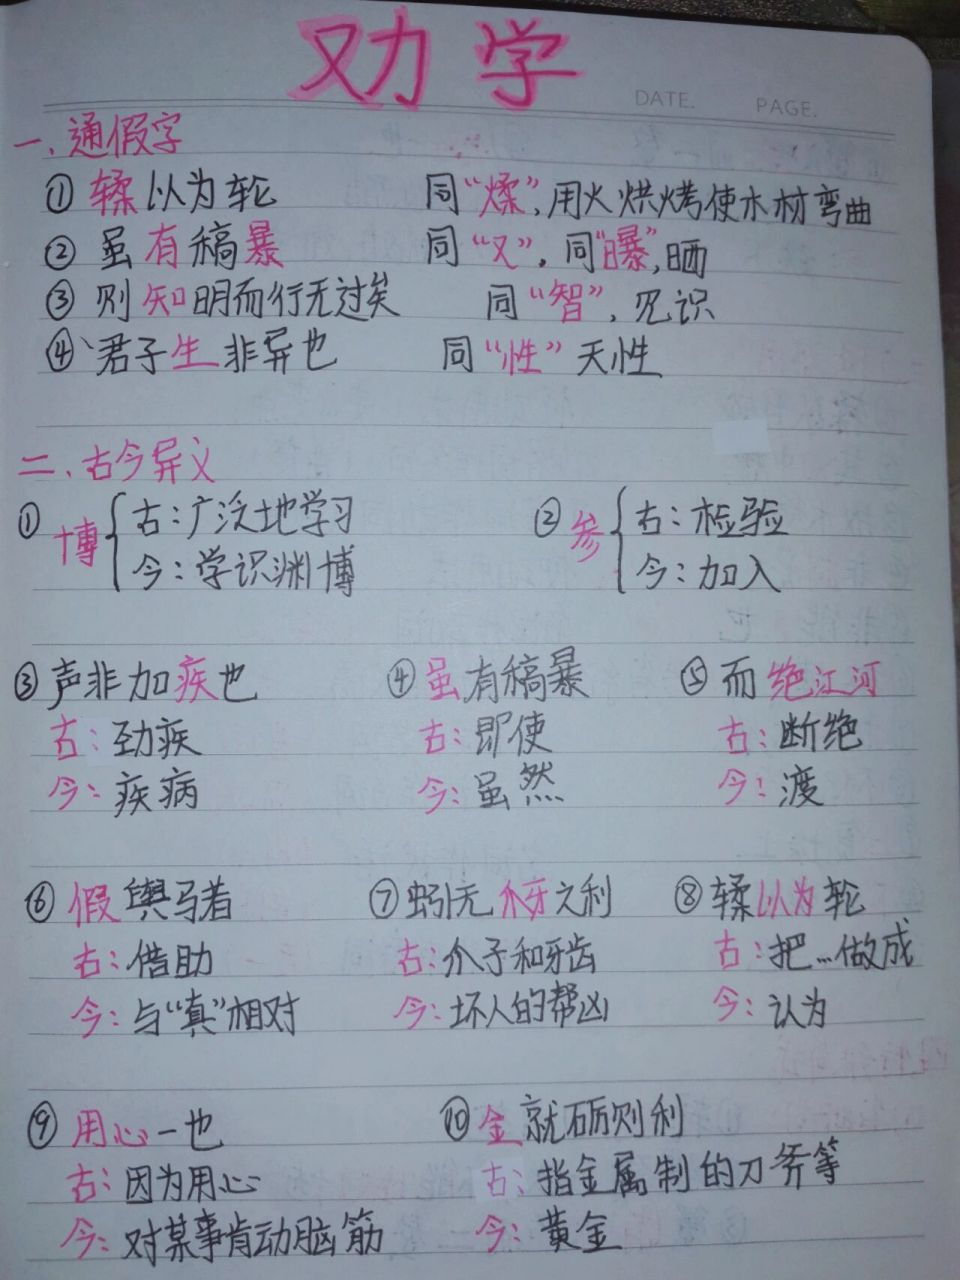 劝学
DATE. PAGE.
一、通假字
① 𫐓以为轮 同“煣”,用火烘烤使木材弯曲
② 虽有稿暴 同“又”,同“曝”,晒
③ 则知明而行无过矣 同“智”,见识
④、君子生非异也 同“性”天性
二、古今异义
① 博 古:广泛地学习 ② 参 古:检验
今:学识渊博 今:加入
③ 声非加疾也 ④ 虽有稿暴 ⑤ 而绝江河
古:劲疾 古:即使 古:断绝
今:疾病 今:虽然 今:渡
⑥ 假舆马者 ⑦ 蚓无爪牙之利 ⑧ 𫐓以为轮
古:借助 古:爪子和牙齿 古:把...做成
今:与“真”相对 今:坏人的帮凶 今:认为
⑨ 用心一也 ⑩ 金就砺则利
古:因为用心 古:指金属制的刀斧等
今:对某事肯动脑筋 今:黄金